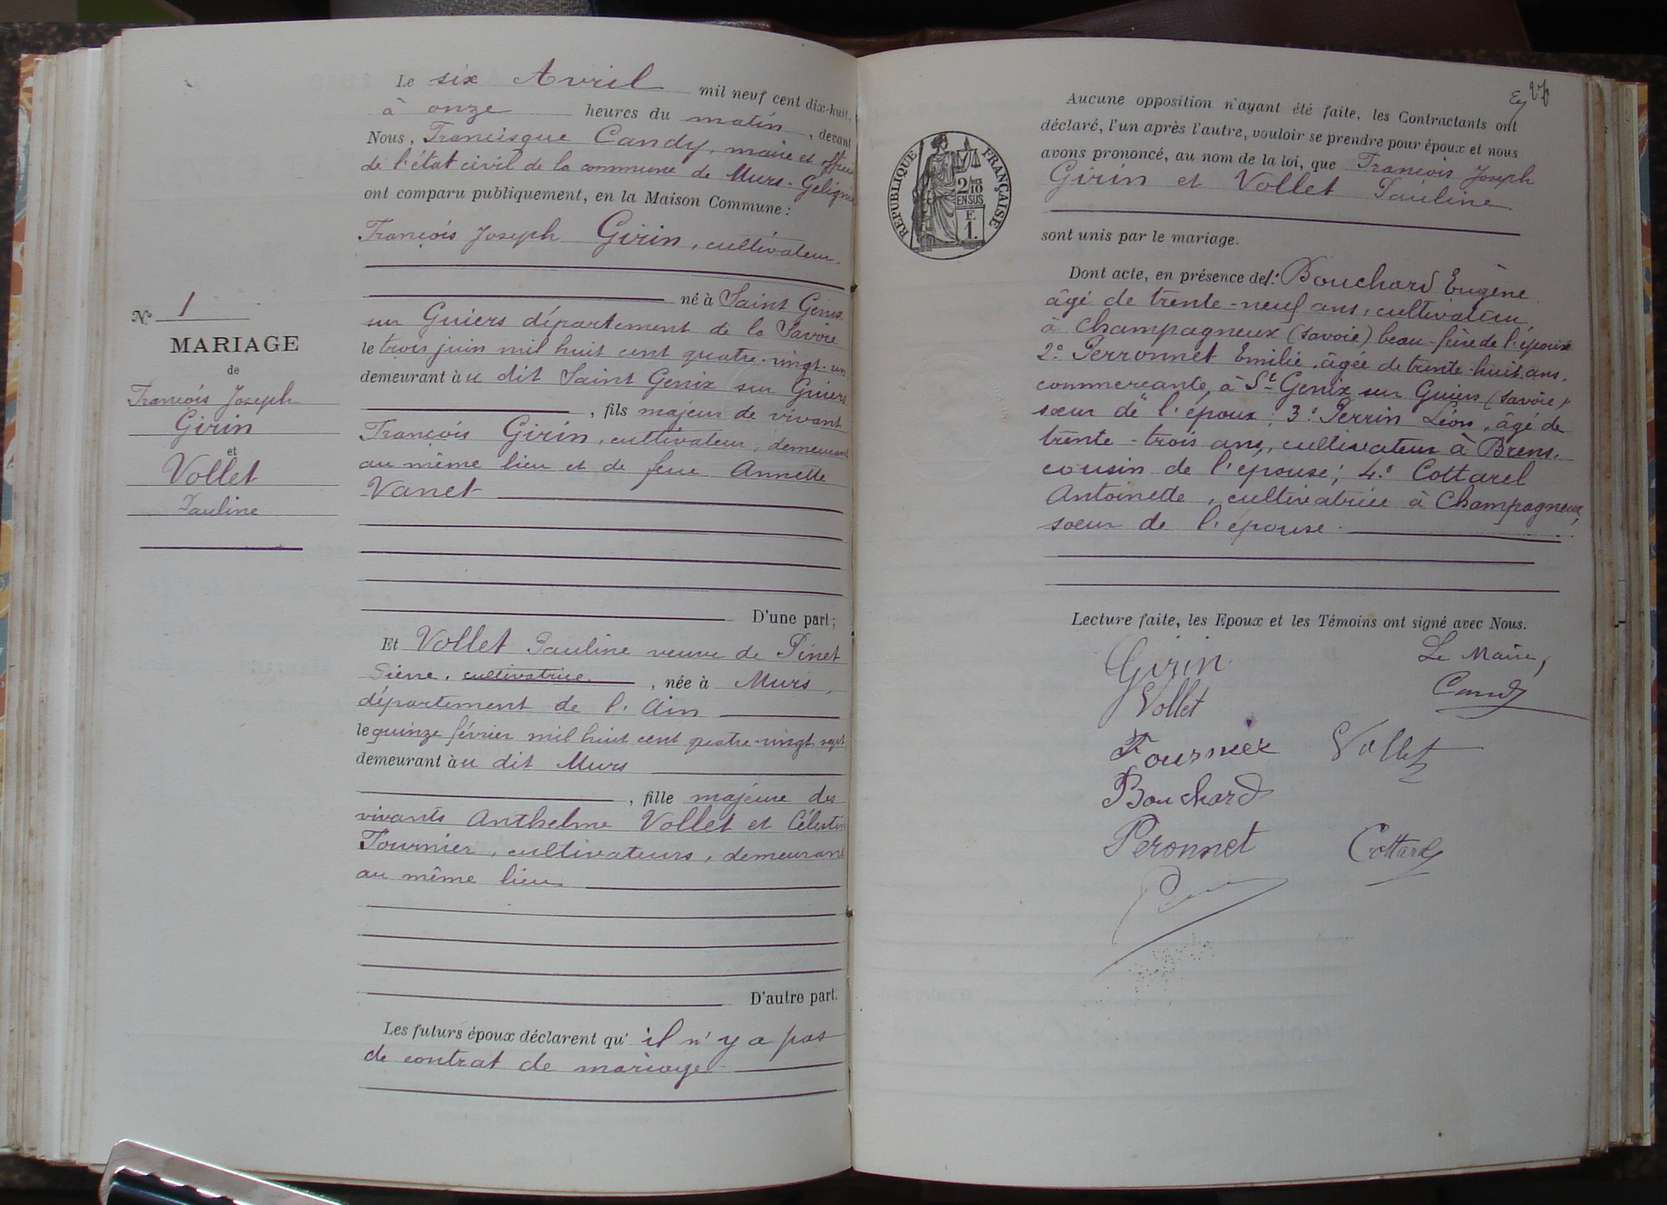 Le six Avril mil neuf cent dix-huit,
à onze heures du matin, devant
Nous, Francisque Candy, maire et officier
de l'état civil de la commune de Murs-Gélignieux
ont comparu publiquement, en la Maison Commune :
François Joseph Girin, cultivateur,
né à Saint Genix
sur Guiers département de la Savoie
le trois juin mil huit cent quatre-vingt-un
demeurant au dit Saint Genix sur Guiers
, fils majeur de vivant
François Girin, cultivateur, demeurant
au même lieu et de feue Annette
Vanet
D'une part;
Et Vollet Pauline veuve de Pinet
Pierre, cultivatrice, née à Murs,
département de l'Ain
le quinze février mil huit cent quatre-vingt sept
demeurant au dit Murs
, fille majeure des
vivants Anthelme Vollet et Célestine
Fournier, cultivateurs, demeurant
au même lieu
D'autre part.
Les futurs époux déclarent qu'il n'y a pas
de contrat de mariage
No 1
MARIAGE
de
François Joseph
Girin
et
Vollet
Pauline
RÉPUBLIQUE FRANÇAISE
2/10
EN SUS
F.
1.
Aucune opposition n'ayant été faite, les Contractants ont
déclaré, l'un après l'autre, vouloir se prendre pour époux et nous
avons prononcé, au nom de la loi, que François Joseph
Girin et Vollet Pauline
sont unis par le mariage.
Dont acte, en présence de 1° Bouchard Eugène
âgé de trente-neuf ans, cultivateur
à Champagneux (Savoie) beau-frère de l'épouse
2° Perronnet Emilie, âgée de trente-huit ans,
commerçante, à St Genix sur Guiers (Savoie)
sœur de l'époux; 3° Perrin Léon, âgé de
trente-trois ans, cultivateur à Brens,
cousin de l'épouse; 4° Cottarel
Antoinette, cultivatrice à Champagneux,
sœur de l'épouse.
Lecture faite, les Epoux et les Témoins ont signé avec Nous.
Girin
Le Maire,
Candy
Vollet
Fournier
Vollet
Bouchard
Peronnet
Cottarel